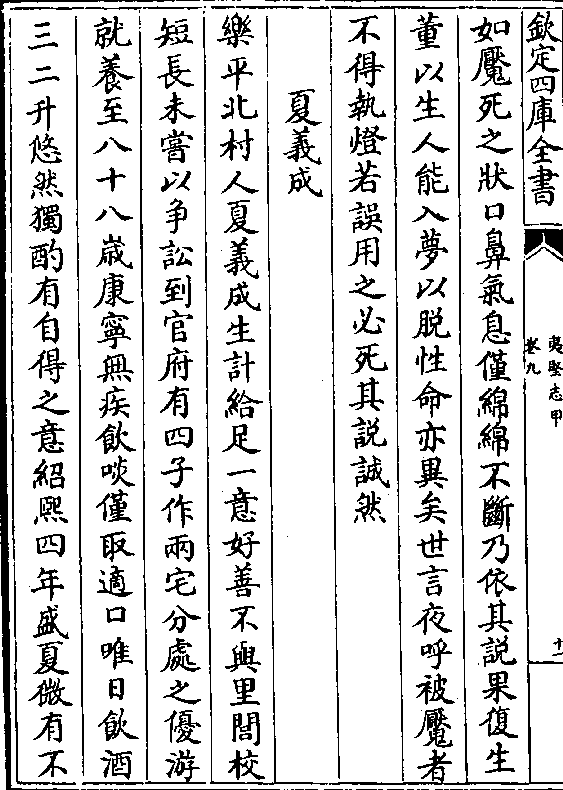 欽定四庫全書
夷堅志甲
卷九
十一
如魘死之狀口鼻氣息僅綿綿不斷乃依其説果復生
董以生人能入夢以脱性命亦異矣世言夜呼被魘者
不得執燈若誤用之必死其説誠然
夏義成
樂平北村人夏義成生計給足一意好善不與里閭校
短長未嘗以爭訟到官府有四子作兩宅分處之優游
就養至八十八嵗康寧無疾飲啖僅取適口唯日飲酒
三二升悠然獨酌有自得之意紹熙四年盛夏微有不